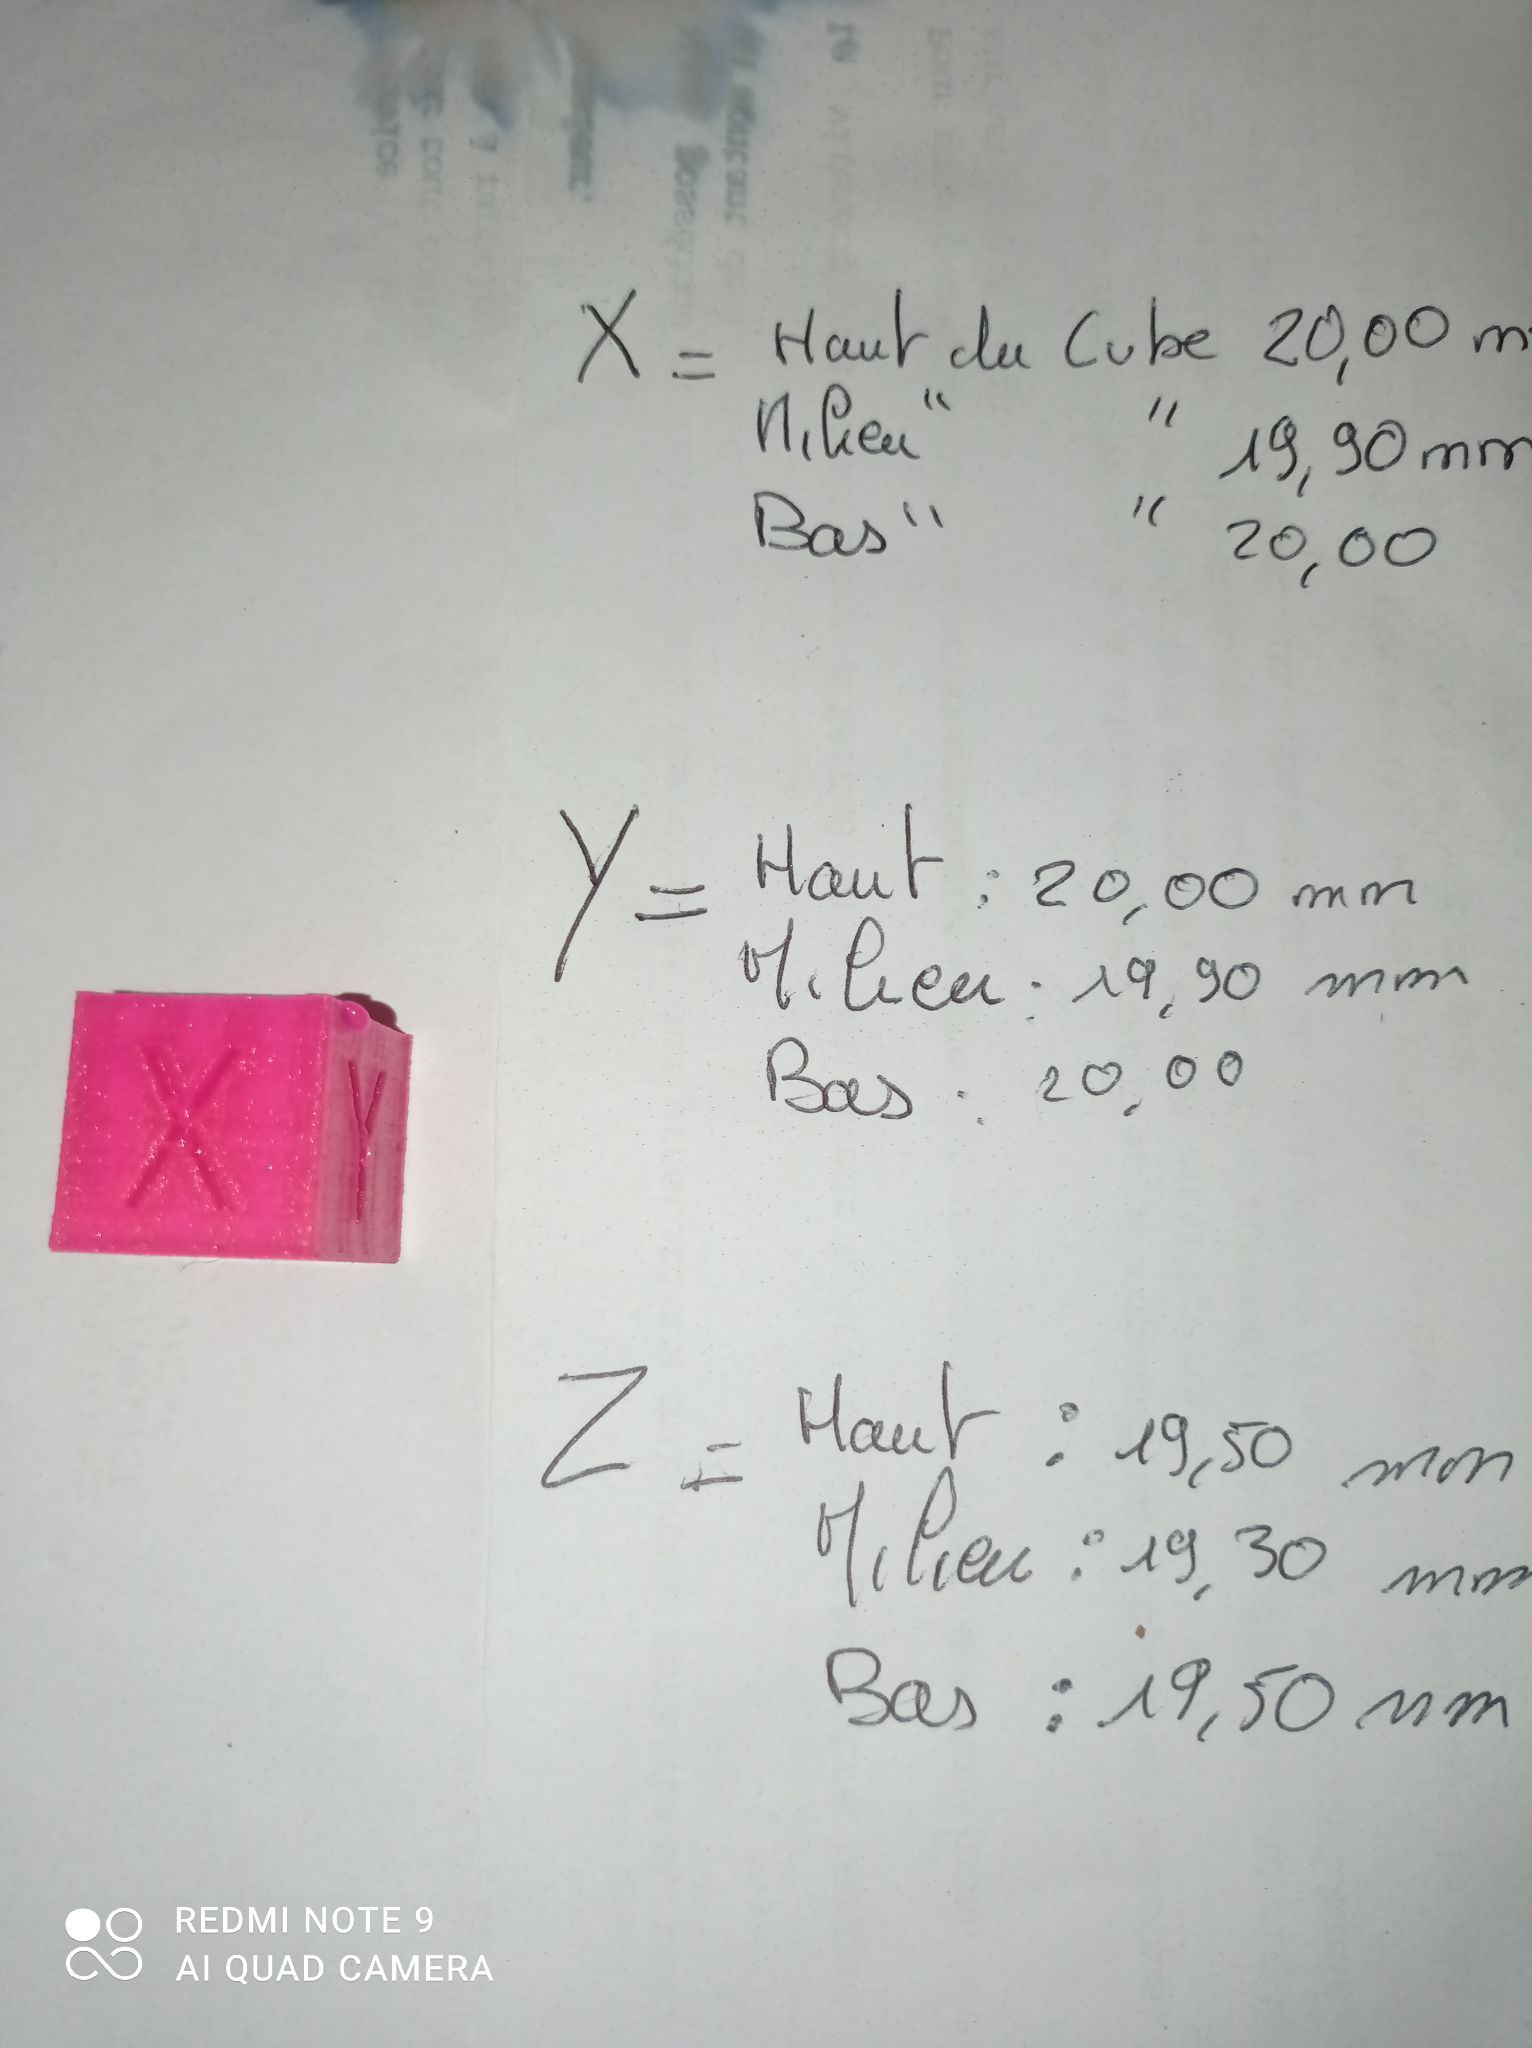 X = Haut du Cube 20,00 m
Milieu " " 19,90 mm
Bas " " 20,00
Y = Haut : 20,00 mm
Milieu : 19,90 mm
Bas : 20,00
X
Y
Z = Haut : 19,50 mm
Milieu : 19,30 mm
Bas : 19,50 mm
REDMI NOTE 9
AI QUAD CAMERA